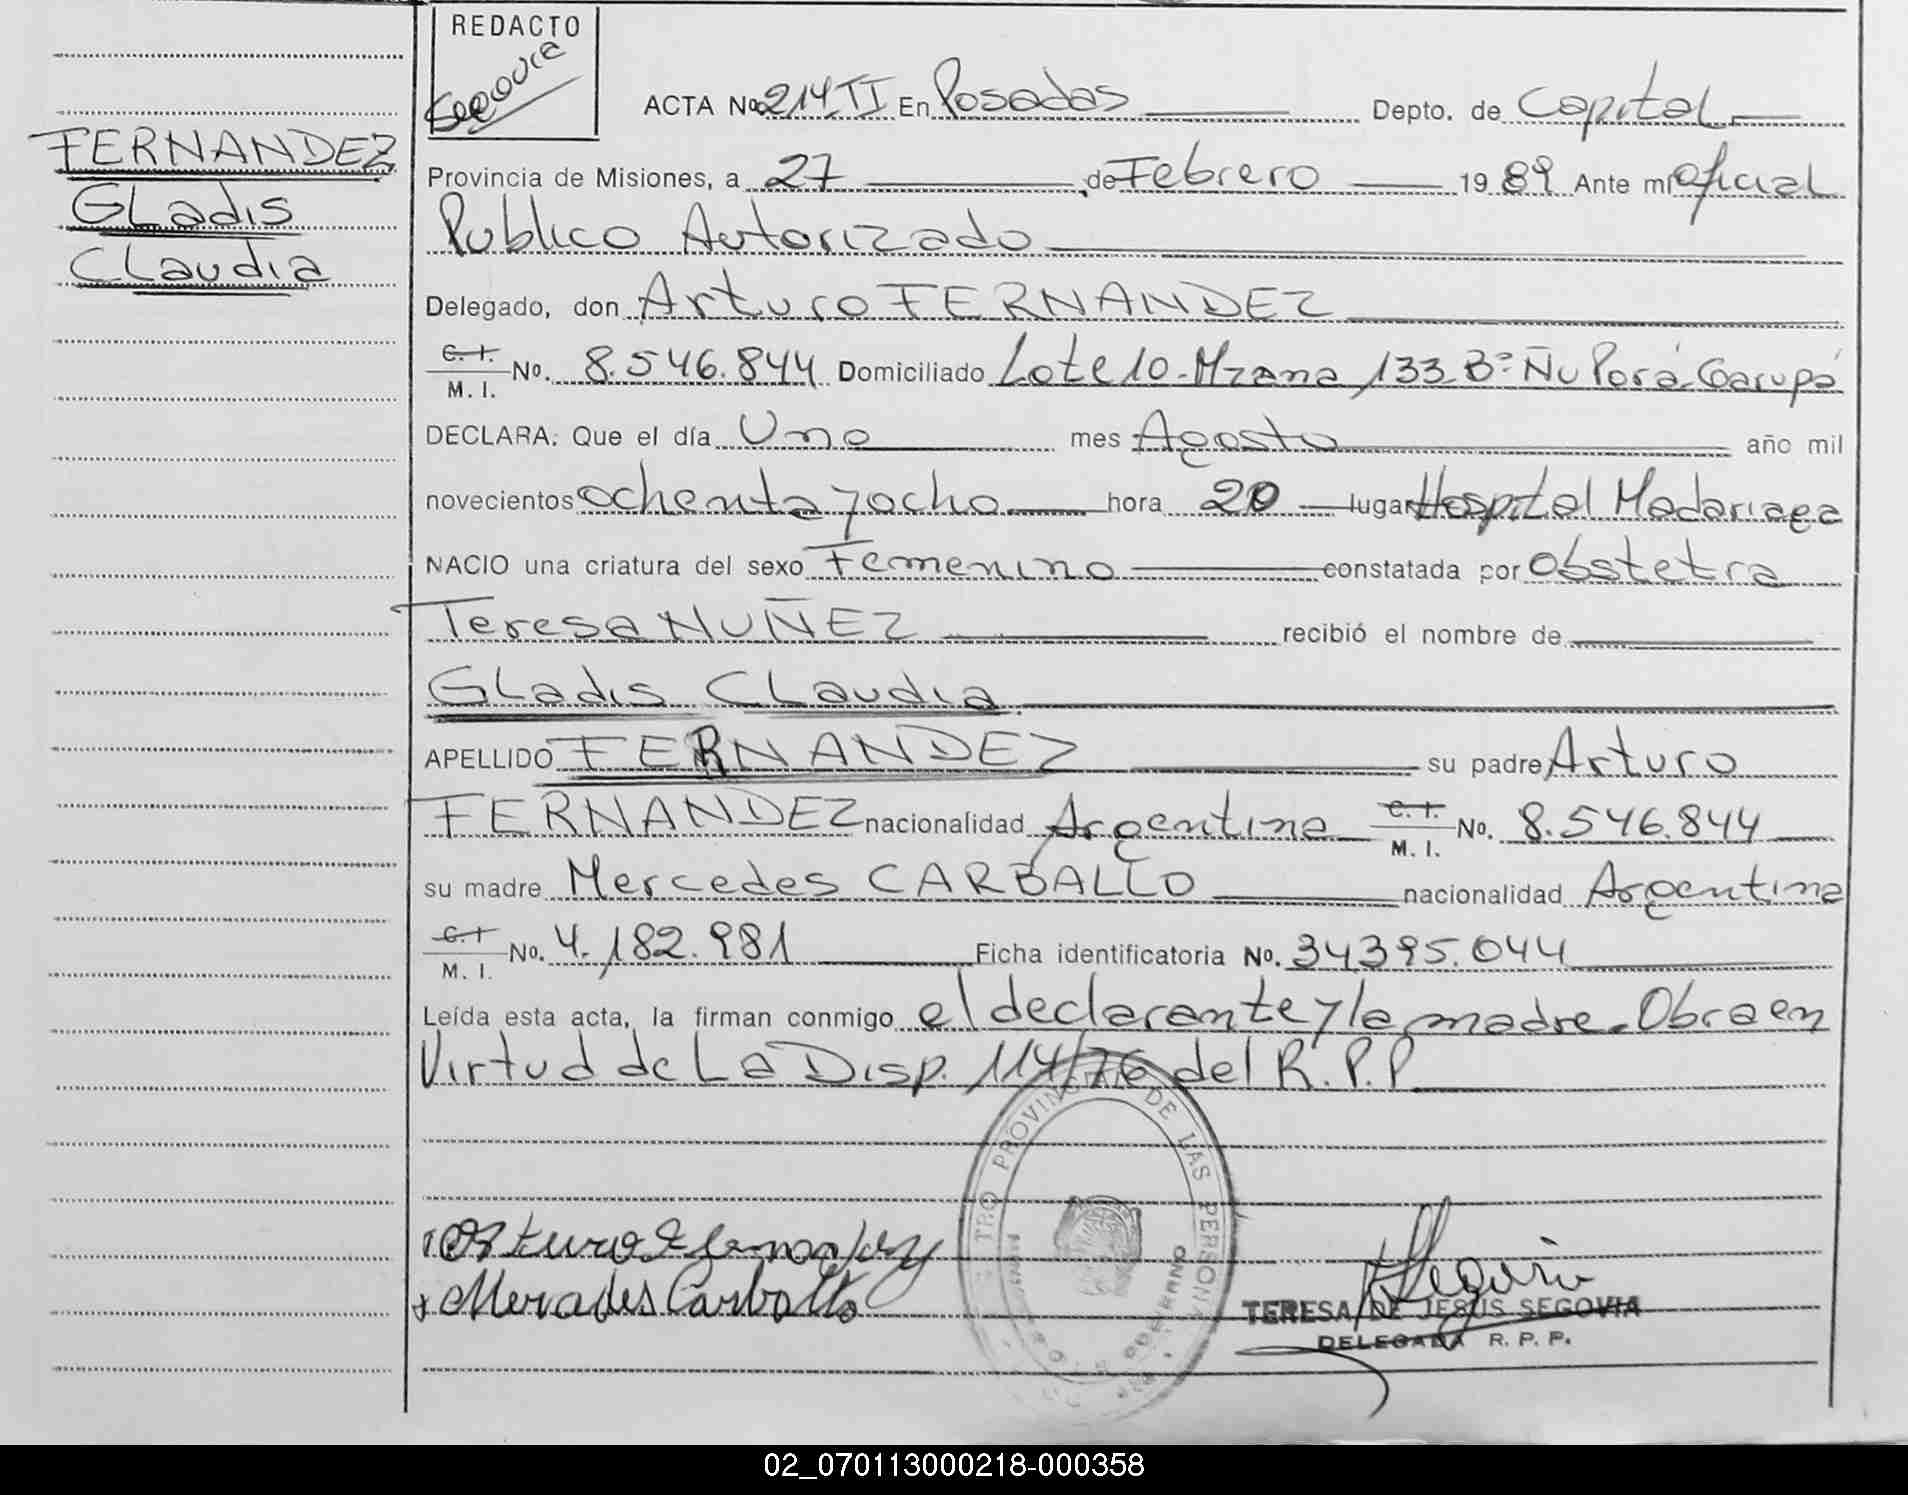 REDACTO
Segovia
FERNANDEZ
GLadis
CLaudia
ACTA No 214 TI En Posadas Depto. de Capital
Provincia de Misiones, a 27 de Febrero 1989 Ante mi oficial
Publico Autorizado
Delegado, don Arturo FERNANDEZ
C. I. M. I. No. 8.546.844 Domiciliado Lote 10-Mzana 133 Bº Ñu Porá-Garupá
DECLARA: Que el día Uno mes Agosto año mil
novecientos ochenta y ocho hora 20 lugar Hospital Madariaga
NACIO una criatura del sexo Femenino constatada por Obstetra
Teresa NUÑEZ recibió el nombre de
GLadis CLaudia
APELLIDO FERNANDEZ su padre Arturo
FERNANDEZ nacionalidad Argentina C. I. M. I. No. 8.546.844
su madre Mercedes CARBALLO nacionalidad Argentina
C. I M. I. No. 4.182.981 Ficha identificatoria No. 34395.044
Leída esta acta, la firman conmigo el declarante y la madre. Obra en
Virtud de La Disp. 114/76 del R.P.P
TRO PROVINCIAL DE LAS PERSONA
Arturo Fernandez
Mercedes Carballo
Segovia
TERESA DE JESUS SEGOVIA
DELEGADA R. P. P.
02_070113000218-000358